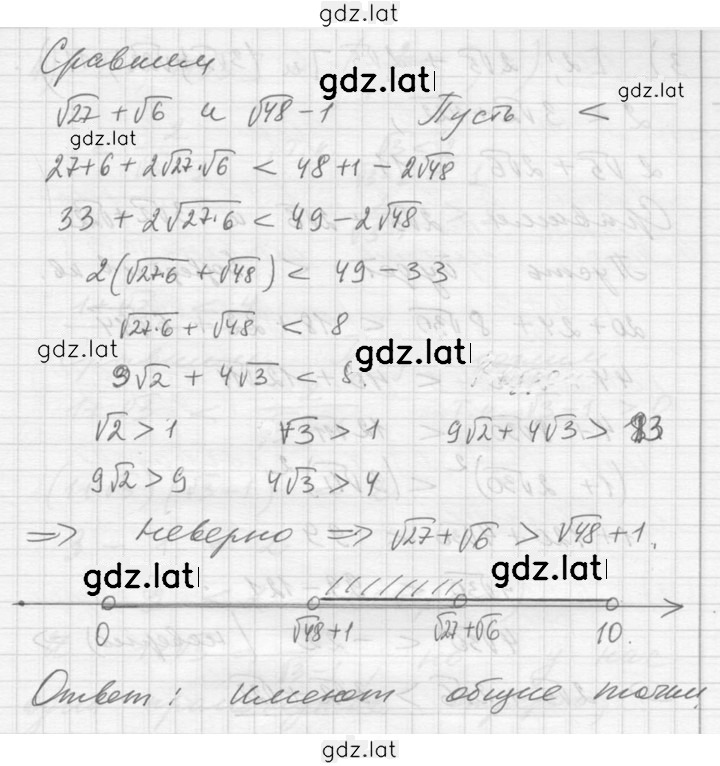 gdz.lat
Сравним
gdz.lat gdz.lat
√27 + √6 и √48 - 1 Пусть <
gdz.lat
27+6+2√27·√6 < 48+1-2√48
33 + 2√27·6 < 49-2√48
2(√27·6 + √48) < 49-33
√27·6 + √48 < 8
gdz.lat gdz.lat
9√2 + 4√3 < 8.
√2 > 1 √3 > 1 9√2 + 4√3 > 13
9√2 > 9 4√3 > 4
=> неверно => √27+√6 > √48+1.
gdz.lat gdz.lat
0 √48+1 √27+√6 10
Ответ: имеют общие точки
gdz.lat